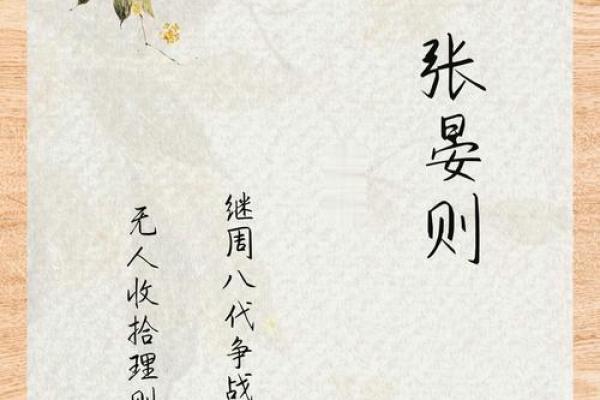 张晏则
继周八代争战
无人收拾理则